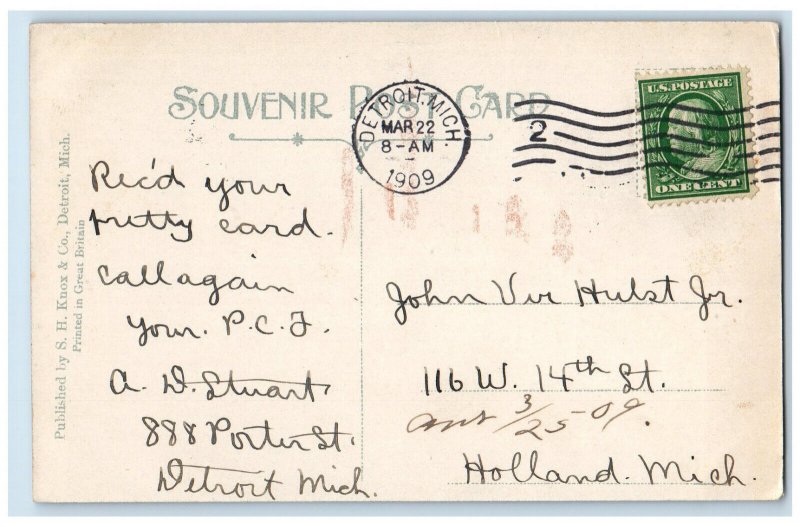 SOUVENIR POST CARD
DETROIT, MICH.
MAR 22
8-AM
1909
2
U.S. POSTAGE
ONE CENT
Published by S. H. Knox & Co., Detroit, Mich.
Printed in Great Britain
Rec'd your
pretty card.
Call again
Your. P.C.F.
A. D. Stuart
888 Porter St.
Detroit Mich.
John Ver Hulst Jr.
116 W. 14th St.
Ans 3/25-09.
Holland. Mich.